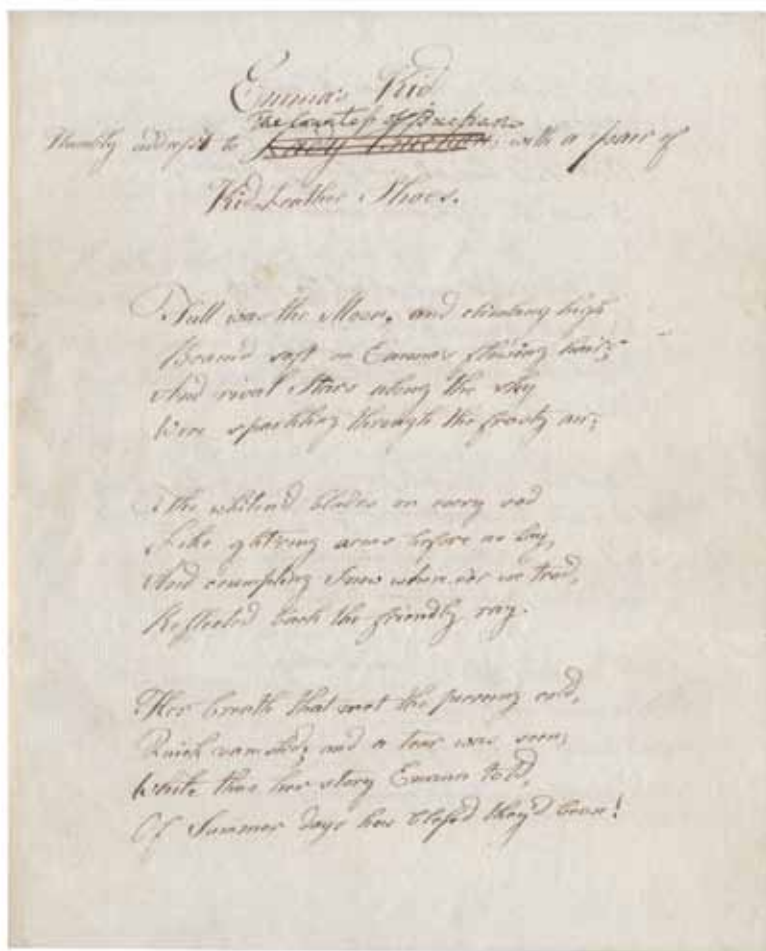 Emma's Kid
The Countess of Buchan
Humbly addrest to Lady Buchan, with a pair of
Kid Leather Shoes.
Full was the Moon, and climbing high
Beam'd soft on Emma's flowing hair;
And rival Stars along the sky
Were sparkling through the frosty air;
The whiten'd blades on every sod
Like glitt'ring arms before us lay,
And crumpling Snow where'er we trod,
Reflected back the friendly ray.
Her breath that met the piercing cold,
Quick vanish'd; and a tear was seen;
While thus her story Emma told,
Of Summer days how blefsd they'd been!